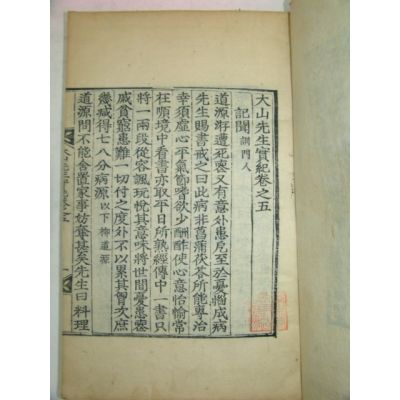 大山先生實紀卷之五
記聞 訓門人
道源洊遭死喪又有外患尼至於憂惱成病
先生賜書戒之曰此病非菖蒲茯苓所能專治
幸須虛心平氣節嗜欲少酬酢使心意怡愉常
在順境中看書亦取平日所熟經傳中一書只
將一兩段從容諷玩悅其意味將世間憂患喪
戚貧窮患難一切付之度外不以累其胷次庶
幾減得七八分病源 以下柳道源
道源問不能舍置家事妨奪甚矣先生曰料理